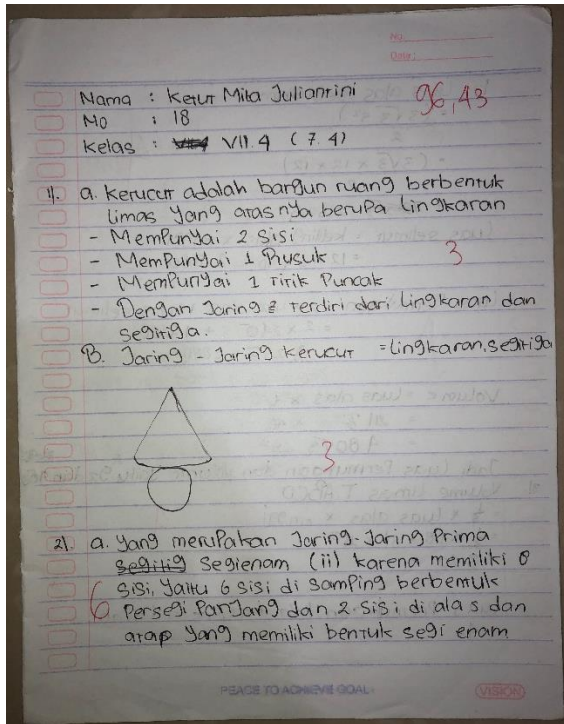 No.
Date:
Nama : Ketut Mita Juliantini
96,43
No : 18
Kelas : VII.4 (7.4)
1). a. Kerucut adalah bangun ruang berbentuk
limas yang atasnya berupa lingkaran
- Mempunyai 2 sisi
- Mempunyai 1 rusuk
3
- Mempunyai 1 titik puncak
- Dengan Jaring2 terdiri dari lingkaran dan
segitiga.
B. Jaring - Jaring kerucut = lingkaran, segitiga
3
2). a. yang merupakan Jaring-Jaring Prima
segitig segienam (ii) karena memiliki 8
sisi, yaitu 6 sisi di samping berbentuk
6
Persegi Panjang dan 2 sisi di alas dan
atap yang memiliki bentuk segi enam
PEACE TO ACHIEVE GOAL
VISION